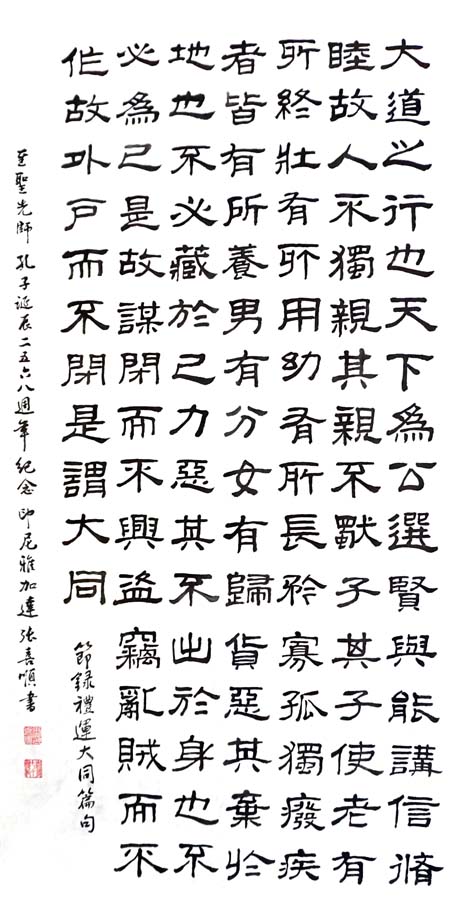 大道之行也天下為公選賢與能講信脩
睦故人不獨親其親不獨子其子使老有
所終壯有所用幼有所長矜寡孤獨廢疾
者皆有所養男有分女有歸貨惡其棄於
地也不必藏於己力惡其不出於身也不
必為己是故謀閉而不興盜竊亂賊而不
作故外戶而不閉是謂大同
節錄禮運大同篇句
至聖先師孔子誕辰二五六八週年紀念印尼雅加達張喜順書